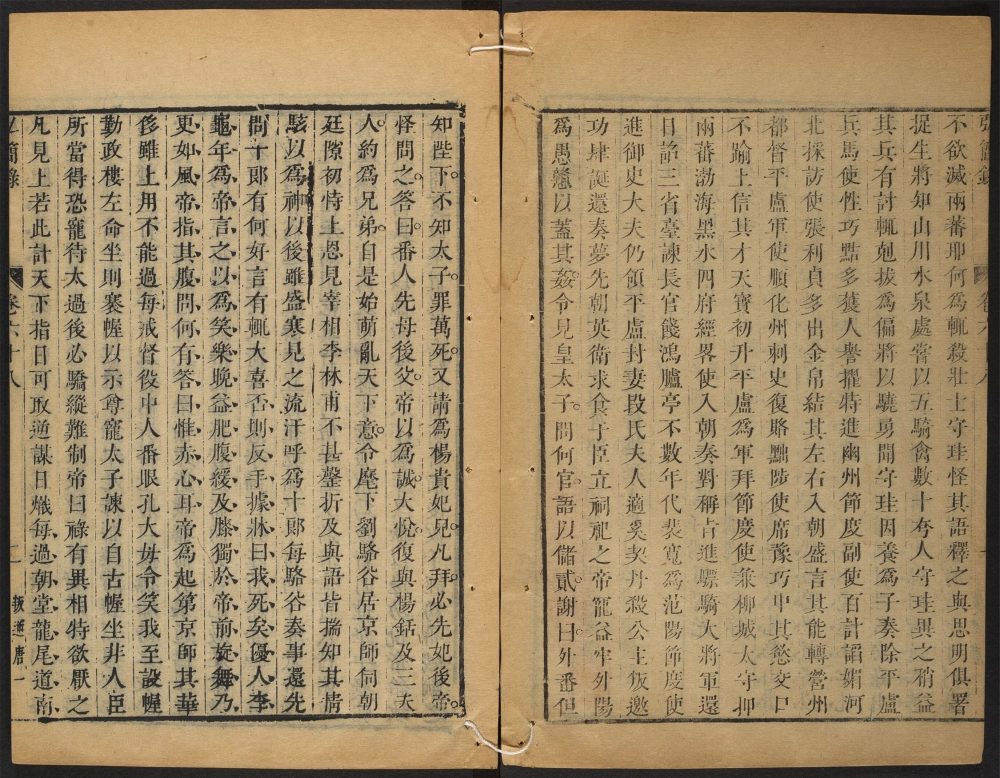 弘簡錄　卷六十八
不欲滅兩蕃耶何為輒殺壯士守珪怪其語釋之與思明俱署
捉生將知山川水泉處嘗以五騎禽數十夸人守珪異之稍益
其兵有討輒剋拔為偏將以驍勇聞守珪因養為子奏除平盧
兵馬使性巧黠多獲人譽擢特進幽州節度副使百計諂媚河
北採訪使張利貞多出金帛結其左右入朝盛言其能轉營州
都督平盧軍使順化州刺史復賂黜陟使席豫巧中其慾交口
不踰上信其才天寶初升平盧為軍拜節度使兼柳城太守押
兩蕃渤海黑水四府經畧使入朝奏對稱旨進驃騎大將軍還
日詔三省臺諫長官餞鴻臚亭不數年代裴寬為范陽節度使
進御史大夫仍領平盧封妻段氏夫人適奚契丹殺公主叛邀
功肆誕還奏夢先朝英衛求食于臣立祠祀之帝寵益牢外陽
為愚戇以蓋其姦令見皇太子問何官語以儲貳謝曰外番但
知陛下不知太子罪萬死又請為楊貴妃兒凡拜必先妃後帝
怪問之答曰番人先母後父帝以為誠大悅復與楊銛及三夫
人約為兄弟自是始萌亂天下意令麾下劉駱谷居京師伺朝
廷隙初恃上恩見宰相李林甫不甚罄折及與語皆揣知其情
駭以為神以後雖盛寒見之流汗呼為十郎每駱谷奏事還先
問十郎有何好言有輒大喜否則反手據牀曰我死矣優人李
龜年為帝言之以為笑樂晚益肥腹緩及膝獨於帝前旋舞乃
更如風帝指其腹問何有答曰惟赤心耳帝為起第京師其華
侈雖上用不能過每戒督役中人番眼孔大毋令笑我至設幄
勤政樓左命坐則褰幄以示尊寵太子諫以自古幄坐非人臣
所當得恐寵待太過後必驕縱難制帝曰祿有異相特欲厭之
凡見上若此計天下指日可取逆謀日熾每過朝堂龍尾道南
弘簡錄　卷六十八　一　叛逆唐一